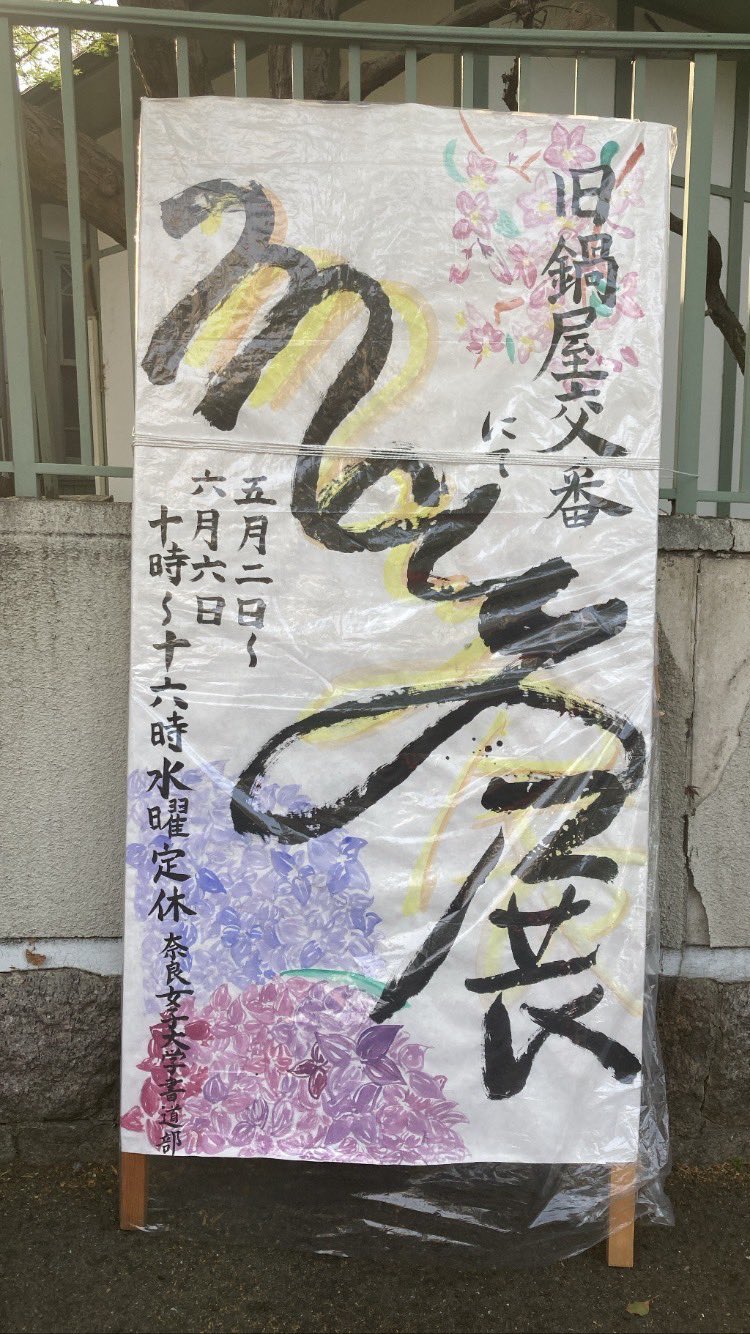 旧鍋屋交番
にて
展
五月二日～
六月六日
十時～十六時水曜定休
奈良女子大学書道部